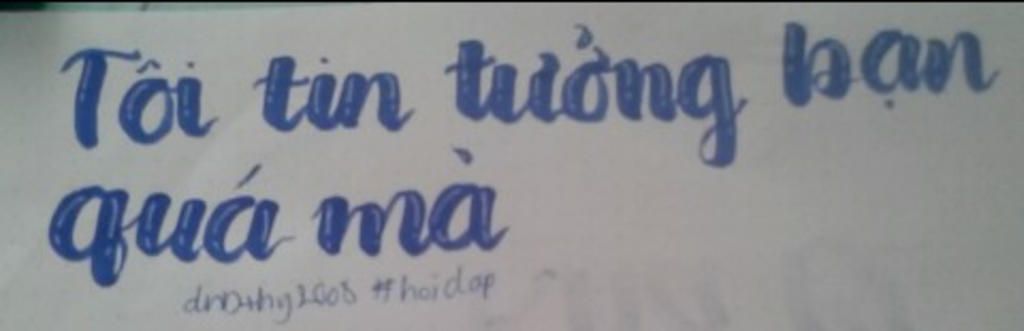 Tôi tin tưởng bạn
quá mà
#hoidap